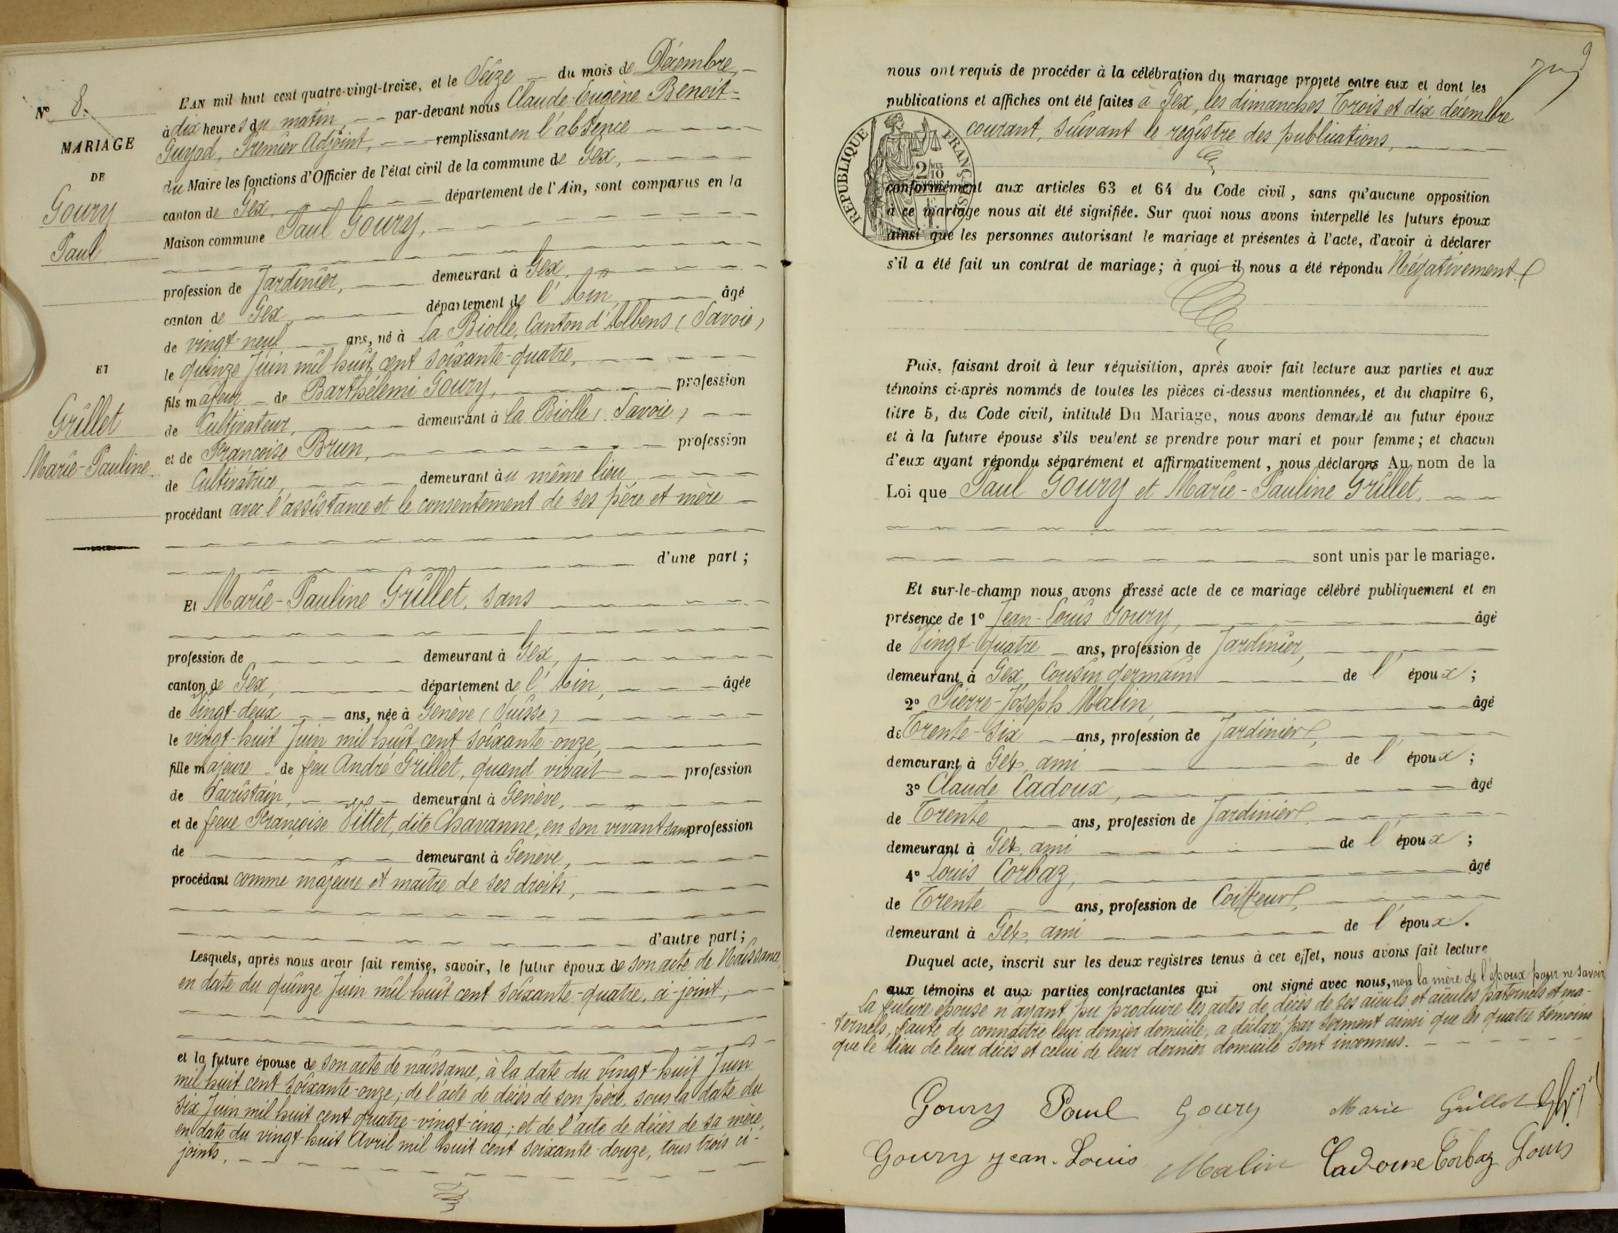 N° 8.
MARIAGE
DE
Goury
Paul
ET
Grillet
Marie-Pauline
L'AN mil huit cent quatre-vingt-treize, et le Seize du mois de Décembre,
à dix heures du matin, par-devant nous Claude-Eugène Benoit-
Guyod, Premier Adjoint, remplissant en l'absence
du Maire les fonctions d'Officier de l'état civil de la commune de Gex,
canton de Gex, département de l'Ain, sont comparus en la
Maison commune Paul Goury,
profession de Jardinier, demeurant à Gex,
canton de Gex, département de l'Ain, âgé
de vingt-neuf ans, né à La Biolle, Canton d'Albens (Savoie)
le quinze Juin mil huit cent soixante-quatre,
fils majeur de Barthélemi Goury, profession
de Cultivateur, demeurant à la Biolle (Savoie)
et de Françoise Brun, profession
de Cultivatrice, demeurant au même lieu
procédant avec l'assistance et le consentement de ses père et mère
d'une part ;
Et Marie-Pauline Grillet, sans
profession de demeurant à Gex,
canton de Gex, département de l'Ain, âgée
de vingt-deux ans, née à Genève (Suisse)
le vingt-huit Juin mil huit cent soixante-onze,
fille majeure de feu André Grillet, quand vivait profession
de Sacristain, demeurant à Genève,
et de feue Françoise Villet, dite Chavanne, en son vivant sans profession
de demeurant à Genève,
procédant comme majeure et maître de ses droits,
d'autre part ;
Lesquels, après nous avoir fait remise, savoir, le futur époux de son acte de Naissance,
en date du quinze Juin mil huit cent soixante-quatre, ci-joint,
et la future épouse de son acte de naissance, à la date du vingt-huit Juin
mil huit cent soixante-onze ; de l'acte de décès de son père, sous la date du
six Juin mil huit cent quatre-vingt-cinq ; et de l'acte de décès de sa mère,
en date du vingt-huit Avril mil huit cent soixante-douze, tous trois ci-
joints,
9
nous ont requis de procéder à la célébration du mariage projeté entre eux et dont les
publications et affiches ont été faites à Gex, les dimanches Trois et dix décembre
courant, suivant le registre des publications,
RÉPUBLIQUE FRANÇAISE
conformément aux articles 63 et 64 du Code civil, sans qu'aucune opposition
à ce mariage nous ait été signifiée. Sur quoi nous avons interpellé les futurs époux
ainsi que les personnes autorisant le mariage et présentes à l'acte, d'avoir à déclarer
s'il a été fait un contrat de mariage ; à quoi il nous a été répondu Négativement
Puis, faisant droit à leur réquisition, après avoir fait lecture aux parties et aux
témoins ci-après nommés de toutes les pièces ci-dessus mentionnées, et du chapitre 6,
titre 5, du Code civil, intitulé Du Mariage, nous avons demandé au futur époux
et à la future épouse s'ils veulent se prendre pour mari et pour femme ; et chacun
d'eux ayant répondu séparément et affirmativement, nous déclarons Au nom de la
Loi que Paul Goury et Marie-Pauline Grillet,
sont unis par le mariage.
Et sur-le-champ nous avons dressé acte de ce mariage célébré publiquement et en
présence de 1° Jean-Louis Goury, âgé
de Vingt-Quatre ans, profession de Jardinier,
demeurant à Gex, Cousin germain de l'époux ;
2° Pierre-Joseph Malin, âgé
de Trente-Six ans, profession de Jardinier,
demeurant à Gex, ami de l'époux ;
3° Claude Cadoux, âgé
de Trente ans, profession de Jardinier,
demeurant à Gex, ami de l'époux ;
4° Louis Corbaz, âgé
de Trente ans, profession de Coiffeur,
demeurant à Gex, ami de l'époux.
Duquel acte, inscrit sur les deux registres tenus à cet effet, nous avons fait lecture
aux témoins et aux parties contractantes qui ont signé avec nous, non la mère de l'époux pour ne savoir
la future épouse n'ayant pu produire les actes de décès de ses aïeuls et aïeules paternels et ma-
ternels, faute de connaître leur dernier domicile, a déclaré par serment ainsi que les quatre témoins
que le lieu de leur décès et celui de leur dernier domicile sont inconnus.
Goury Paul Goury Marie Grillet
Goury Jean-Louis Malin Cadoux Corbaz Louis